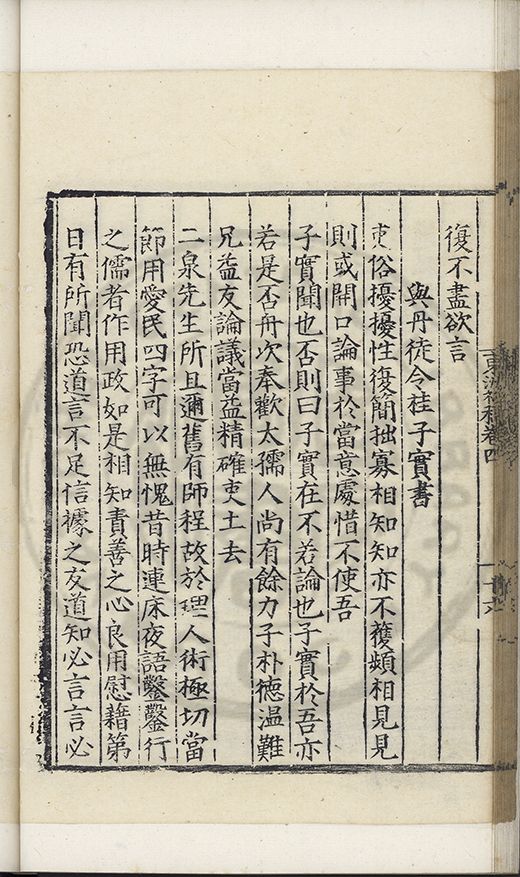 復不盡欲言
與丹徒令桂子實書
吏俗擾擾性復簡拙寡相知知亦不獲頻相見見
則或開口論事於當意處惜不使吾
子實聞也否則曰子實在不若論也子實於吾亦
若是否舟次奉歡太孺人尚有餘力子朴德温難
兄益友論議當益精確吏土去
二泉先生所且邇舊有師程故於理人術極切當
節用愛民四字可以無愧昔時連床夜語鑿鑿行
之儒者作用政如是相知責善之心良用慰藉第
日有所聞恐道言不足信據之友道知必言言必